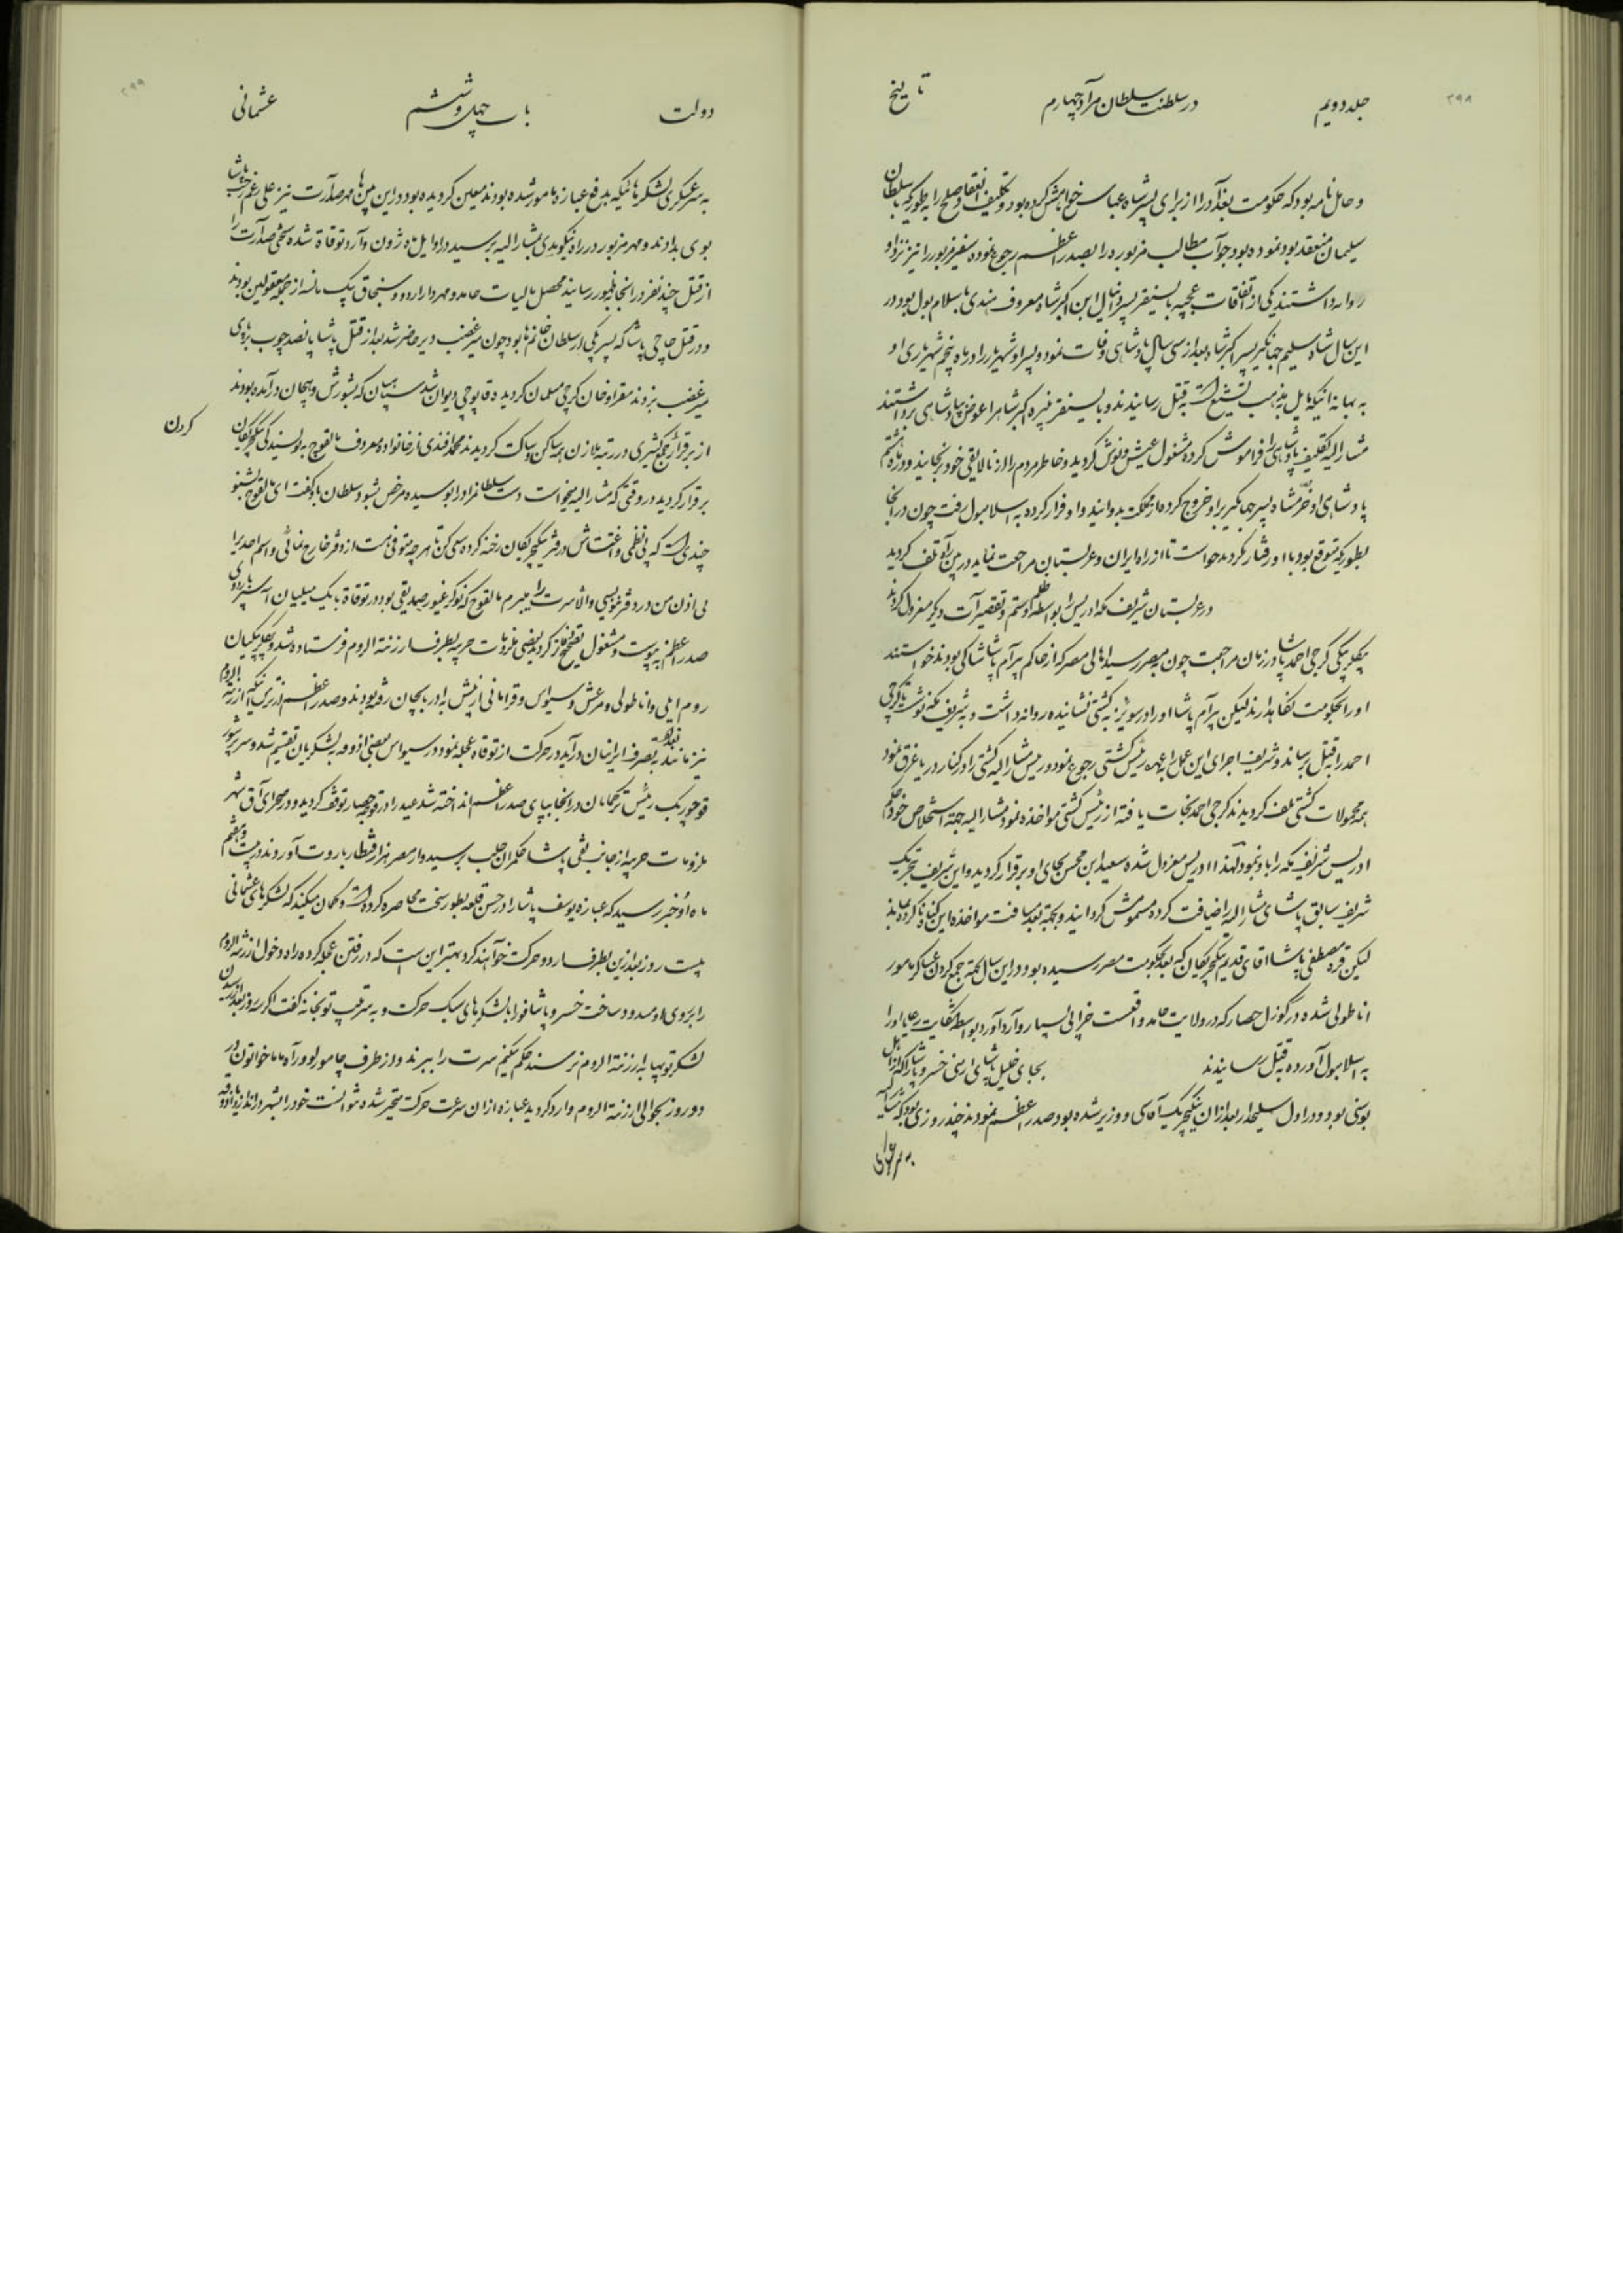 ۳۹۸
جلد دویم
در سلطنت سلطان مراد چهارم
تاریخ
و حامل نامه بود که حکومت بغداد را از برای پسر شاه عباس خواهش کرده بود و تکلیف انعقاد صلح را بطوریکه با سلطان
سلیمان منعقد بود نموده بود جواب مطالب مزبوره را بصدر اعظم رجوع نموده سفیر مزبور را نیز نزد او
روانه داشتند یکی از اتفاقات عجیبه بایسنقر پسر دانیال ابن اکبر شاه معروف هندی باسلامبول بود در
این سال شاه سلیم جهانگیر پسر اکبر شاه بعد از سی سال پادشاهی وفات نمود و پسر او شهریار را در ماه پنجم شهریاری او
به بهانه اینکه مایل بمذهب تشیع است به قتل رسانیدند و بایسنقر نبیره اکبر شاه را عوض او بپادشاهی برداشتند
مشار الیه تکلیف پادشاهی را فراموش کرده مشغول عیش و نوش گردید و خاطر مردم را از نالایقی خود رنجانید و در ماه هشتم
پادشاهی او خرمشاه پسر جهانگیر بر او خروج کرده از مملکت بدوانید و او فرار کرده به اسلامبول رفت چون در آنجا
بطوریکه متوقع بود با او رفتار نکردند خواست تا از راه ایران و عربستان مراجعت نماید در بین راه تلف گردید
در عربستان شریف مکه ادریس را بواسطه ظلم و ستم و تقصیرات دیگر معزول کردند
بیگلربیگی گرجی احمد پاشا در زمان مراجعت چون بمصر رسید اهالی مصر که از حاکم بیرام پاشا شاکی بودند خواستند
او را بحکومت نگاهدارند لیکن بیرام پاشا او را در سویز به کشتی نشانیده روانه داشت و به شریف مکه نوشت تا گرجی
احمد را بقتل برساند و شریف اجرای این عمل را بعهده رئیس کشتی رجوع نمود و رئیس مشار الیه کشتی را در کنار دریا غرق نمود
همه محمولات کشتی تلف گردیدند گرجی احمد نجات یافته از رئیس کشتی مواخذه نمود مشار الیه جهة استخلاص خود حکم
ادریس شریف مکه را باو نمود لهذا ادریس معزول شده سعید ابن محسن بجای او برقرار گردید و این شریف بتحریک
شریف سابق پاشای مشار الیه را ضیافت کرده مسموم ش گردانیدند و بجهة بعد مسافت مواخذه این گناه نا کرده بماند
لیکن قره مصطفی پاشا اقای قدیم ینگیچریکان که بعد بحکومت مصر رسیده بود و در این سال بجهة جمع کردن عساکر مامور
اناطولی شده در گوزل حصار که در ولایت حامد واقعست خرابی بسیار وارد آورد بواسطه شکایت رعایا او را
به اسلامبول آورده به قتل رسانیدند بجای خلیل پاشای ارمنی خسرو پاشا را که از اهل
بوسنی بود و در اول سلیحدار بعد از آن ینگیچریک آقاسی و وزیر شده بود صدر اعظم نمودند چند روزی بود که مشار الیه
به سر عسکری
۳۹۹
دولت
باب چهل و ششم
عثمانی
به سر عسکری لشکرهائیکه بدفع عبازه مامور شده بودند معین گردیده بود در این بین ها مهر صدارت نیز علی رغم رجب پاشا
بوی بدادند و مهر مزبور در راه نیکومدی بمشار الیه برسید در اوایل ماه ژون وارد توقاة شده سختی صدارت را
از قتل چند نفر در آنجا بظهور رسانید محصل مالیات حامد و مهردار اردو و سنجاق بیک مانسه از جمله مقتولین بودند
و در قتل چاچی پاشا که پسر یکی از سلطان خانم ها بود چون میر غضب دیر حاضر شد بعد از قتل پاشا پانصد چوب بر پای
میر غضب بزدند مقراو خان گرجی مسلمان گردیده قاپوچی دیوان شد سپهیان که بشورش و هیجان در آمده بودند
از برقراری در رتبه ملازمان همه ساکن و ساکت گردیدند محمد افندی از خانواده معروف مالقوج به نویسندگی ینگیچریکان
برقرار گردید در وقتی که مشار الیه میخواست دست سلطان مراد را بوسیده مرخص بشود سلطان باو گفت ای مالقوج بشنو
چندی است که بی نظمی و اغتشاش در دفتر ینگیچریکان رخنه کرده سعی کن تا هر چه متوفی هست از دفتر خارج نمائی و اسم احدی را
بی اذن من در دفتر ننویسی و الا سرت را میبرم مالقوج که نوکر غیور صدیقی بود در توقاة با یک میلیون آسپر به اردوی
صدر اعظم پیوست و مشغول تصحیح دفاتر گردید بعضی ملزومات حربیه بطرف ارزنة الروم فرستاده شد و بیگلربیگیان
روم ایلی و اناطولی و مرعش و سیواس و قرامانی از پیش به آذربایجان رفته بودند و صدر اعظم از ترس اینکه ارزنة الروم
نیز مانند بغداد بتصرف ایرانیان درآید در حرکت از توقاة عجله نمود در سیواس بعضی آذوقه به لشکریان تقسیم شد و سر پرشور
قوجور بیک رئیس ترکمانان در آنجا بپای صدر اعظم انداخته شد عید را در قوجحصار توقف گردید و در صحرای آق شهر
ملزومات حربیه از جانب نقی پاشا حکمران حلب برسید و از مصر هزار قنطار باروت آوردند در بیست و هفتم
ماه اوت خبر رسید که عبازه یوسف پاشا را در حسن قلعه بطور سخت محاصره کرده است و گمان میکند که لشکرهای عثمانی
بیست روز بعد ازین بطرف اردو حرکت خواهند کرد بهتر این است که در رفتن عجله کرده راه دخول ارزنة الروم
را بر روی او مسدود ساخت خسرو پاشا فورا با لشکرهای سبک حرکت و به سرتیپ توپخانه گفت اگر سه روز بعد از رسیدن
لشکر توپها به ارزنة الروم نرسند حکم میکنم سرت را ببرند و از طرف چامولو و راه ماماخواتون در
دو روز بحوالی ارزنة الروم وارد گردید عبازه از آن سرعت حرکت متحیر شده نتوانست خود را بشهر اندازد و آذوقه
کردن